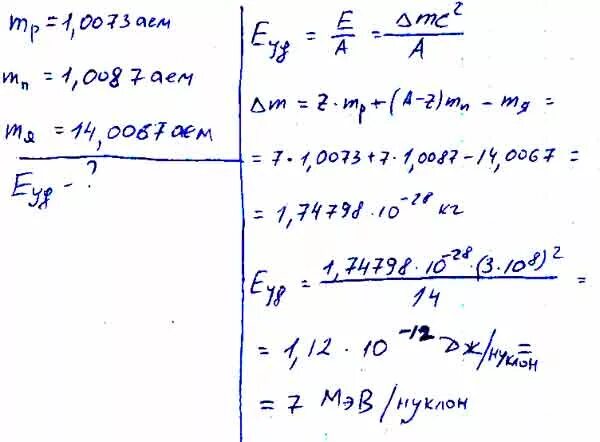 mp = 1,0073 аем
mn = 1,0087 аем
mя = 14,0067 аем
Eуд - ?
Eуд = E/A = Δmc²/A
Δm = Z·mp + (A-Z)mn - mя =
= 7·1,0073 + 7·1,0087 - 14,0067 =
= 1,74798·10⁻²⁸ кг
Eуд = 1,74798·10⁻²⁸·(3·10⁸)²/14 =
= 1,12·10⁻¹² Дж/нуклон =
= 7 МэВ/нуклон